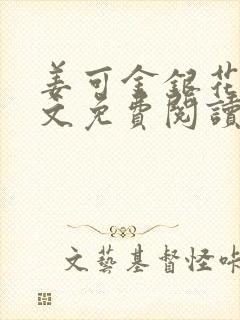 姜可金銀花
文免費閱讀
文藝基督怪咔